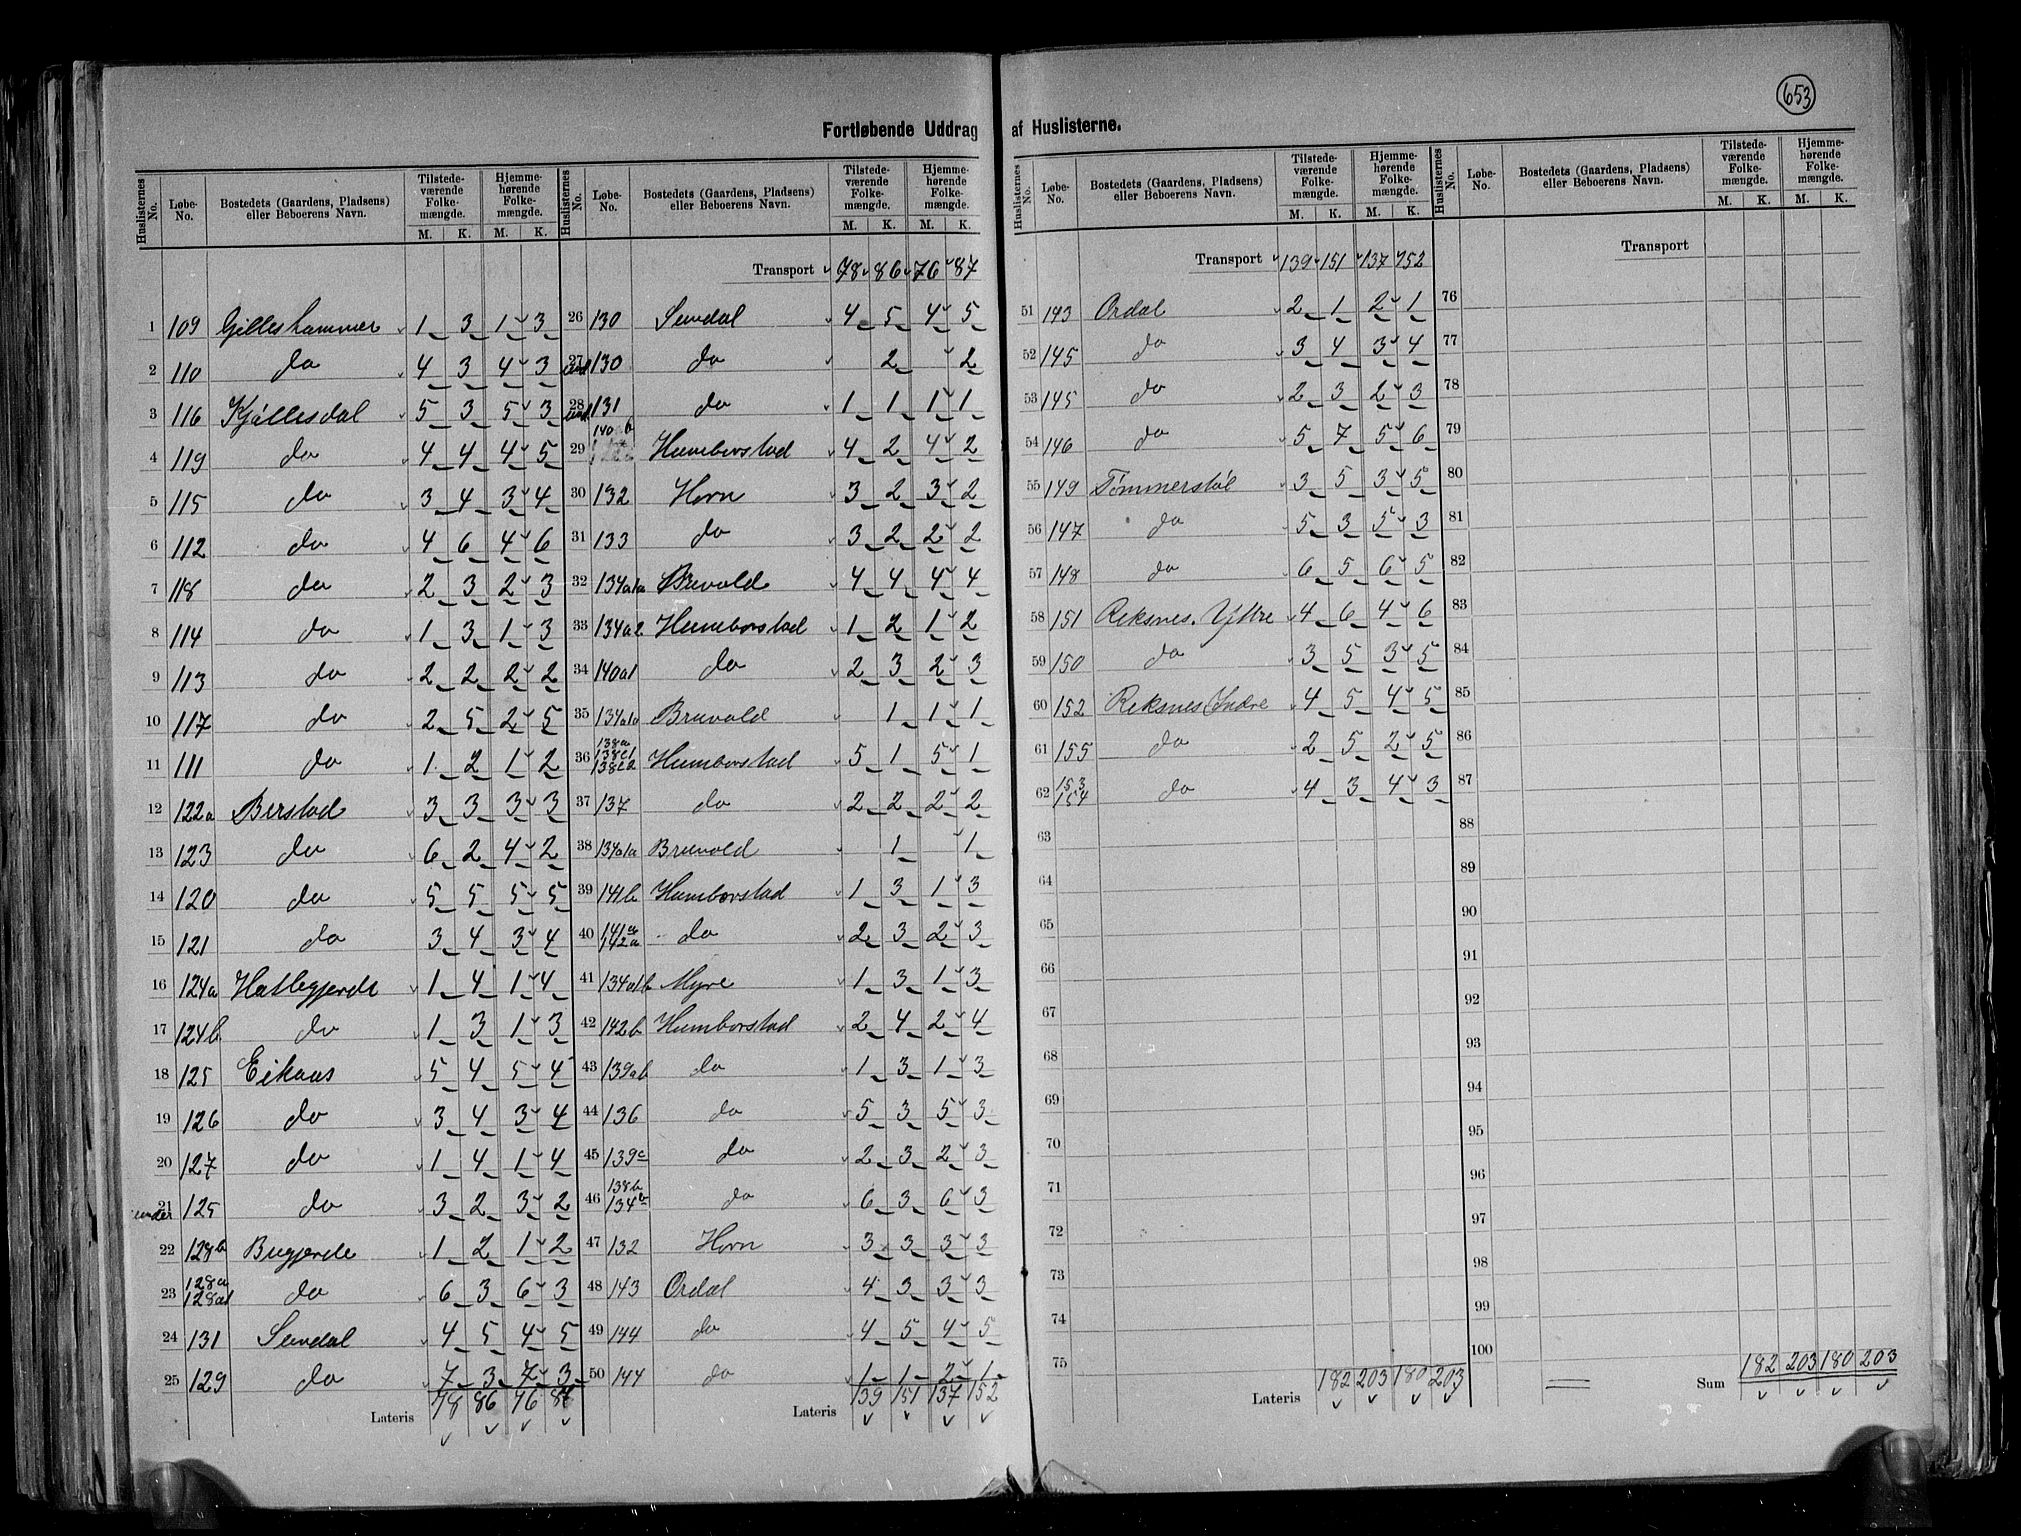 653
Fortløbende Uddrag af Huslisterne.
Huslisternes No. Løbe-No. Bostedets (Gaardens, Pladsens) eller Beboerens Navn. Tilstede-værende Folke-mængde. M. K. Hjemme-hørende Folke-mængde. M. K.
1 109 Gilleshammer 1 3 1 3
2 110 do 4 3 4 3
3 116 Kjøllesdal 5 3 5 3
4 119 do 4 4 4 5
5 115 do 3 4 3 4
6 112 do 4 6 4 6
7 118 do 2 3 2 3
8 114 do 1 3 1 3
9 113 do 2 2 2 2
10 117 do 2 5 2 5
11 111 do 1 2 1 2
12 122a Berstad 3 3 3 3
13 123 do 6 2 4 2
14 120 do 5 5 5 5
15 121 do 3 4 3 4
16 124a Hatlegjerde 1 4 1 4
17 124b do 1 3 1 3
18 125 Eikaas 5 4 5 4
19 126 do 3 4 3 4
20 127 do 1 4 1 4
21 under 125 do 3 2 3 2
22 128b Bugjerde 1 2 1 2
23 128a 128a1 do 6 3 6 3
24 131 Sundal 4 5 4 5
25 129 do 7 3 7 3
Lateris 78 86 76 87
Huslisternes No. Løbe-No. Bostedets (Gaardens, Pladsens) eller Beboerens Navn. Tilstede-værende Folke-mængde. M. K. Hjemme-hørende Folke-mængde. M. K.
Transport 78 86 76 87
26 130 Sundal 4 5 4 5
27 und 130 do 2 2
28 und 131 do 1 1 1 1
29 140ab Humborstad 4 2 4 2
30 132 Horn 3 2 3 2
31 133 do 3 2 2 2
32 134a1a Bruvold 4 4 4 4
33 134a2 Humborstad 1 2 1 2
34 140a1 do 2 3 2 3
35 134a1a Bruvold 1 1 1
36 138a 138c1 138c2 Humborstad 5 1 5 1
37 137 do 2 2 2 2
38 134a1a Bruvold 1 1
39 141b Humborstad 1 3 1 3
40 141a 142a do 2 3 2 3
41 134a1b Myre 1 3 1 3
42 142b Humborstad 2 4 2 4
43 139ab do 1 3 1 3
44 136 do 5 3 5 3
45 139c do 2 3 2 3
46 138b 134b do 6 3 6 3
47 132 Horn 3 3 3 3
48 143 Ordal 4 3 3 3
49 144 do 4 5 4 5
50 144 do 1 1 2 1
Lateris 139 151 137 152
Huslisternes No. Løbe-No. Bostedets (Gaardens, Pladsens) eller Beboerens Navn. Tilstede-værende Folke-mængde. M. K. Hjemme-hørende Folke-mængde. M. K.
Transport 139 151 137 152
51 143 Ordal 2 1 2 1
52 145 do 3 4 3 4
53 145 do 2 3 2 3
54 146 do 5 7 5 6
55 149 Tømmerstøl 3 5 3 5
56 147 do 5 3 5 3
57 148 do 6 5 6 5
58 151 Reksnes. Yttre 4 6 4 6
59 150 do 3 5 3 5
60 152 Reksnes Indre 4 5 4 5
61 155 do 2 5 2 5
62 153 154 do 4 3 4 3
63
64
65
66
67
68
69
70
71
72
73
74
75
Lateris 182 203 180 203
Huslisternes No. Løbe-No. Bostedets (Gaardens, Pladsens) eller Beboerens Navn. Tilstede-værende Folke-mængde. M. K. Hjemme-hørende Folke-mængde. M. K.
Transport
76
77
78
79
80
81
82
83
84
85
86
87
88
89
90
91
92
93
94
95
96
97
98
99
100
Sum 182 203 180 203